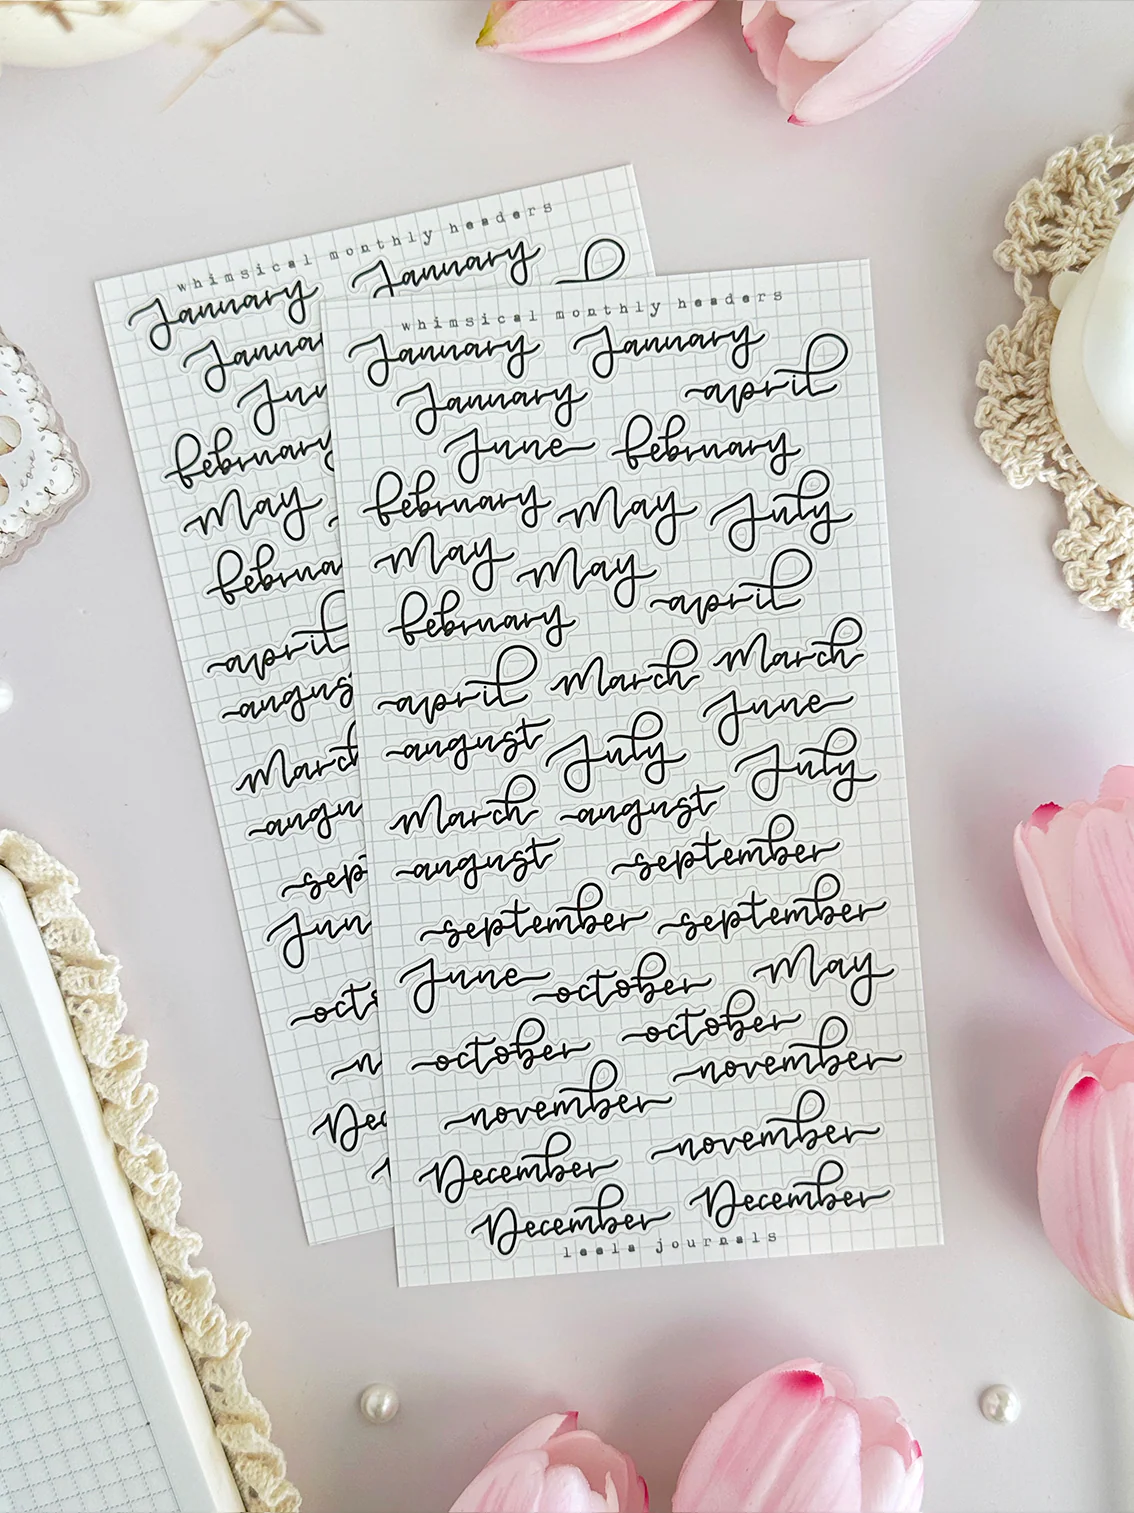 whimsical monthly headers
January January
Janua
Jun
februar
May
februa
april
augus
Marc
augu
sep
Jun
octo
n
Dec
whimsical monthly headers
January January
January april
June february
february May July
May May
february april
april March March
august July June
March august July
august september
september september
June october May
october october
november november
December november
December December
leela journals